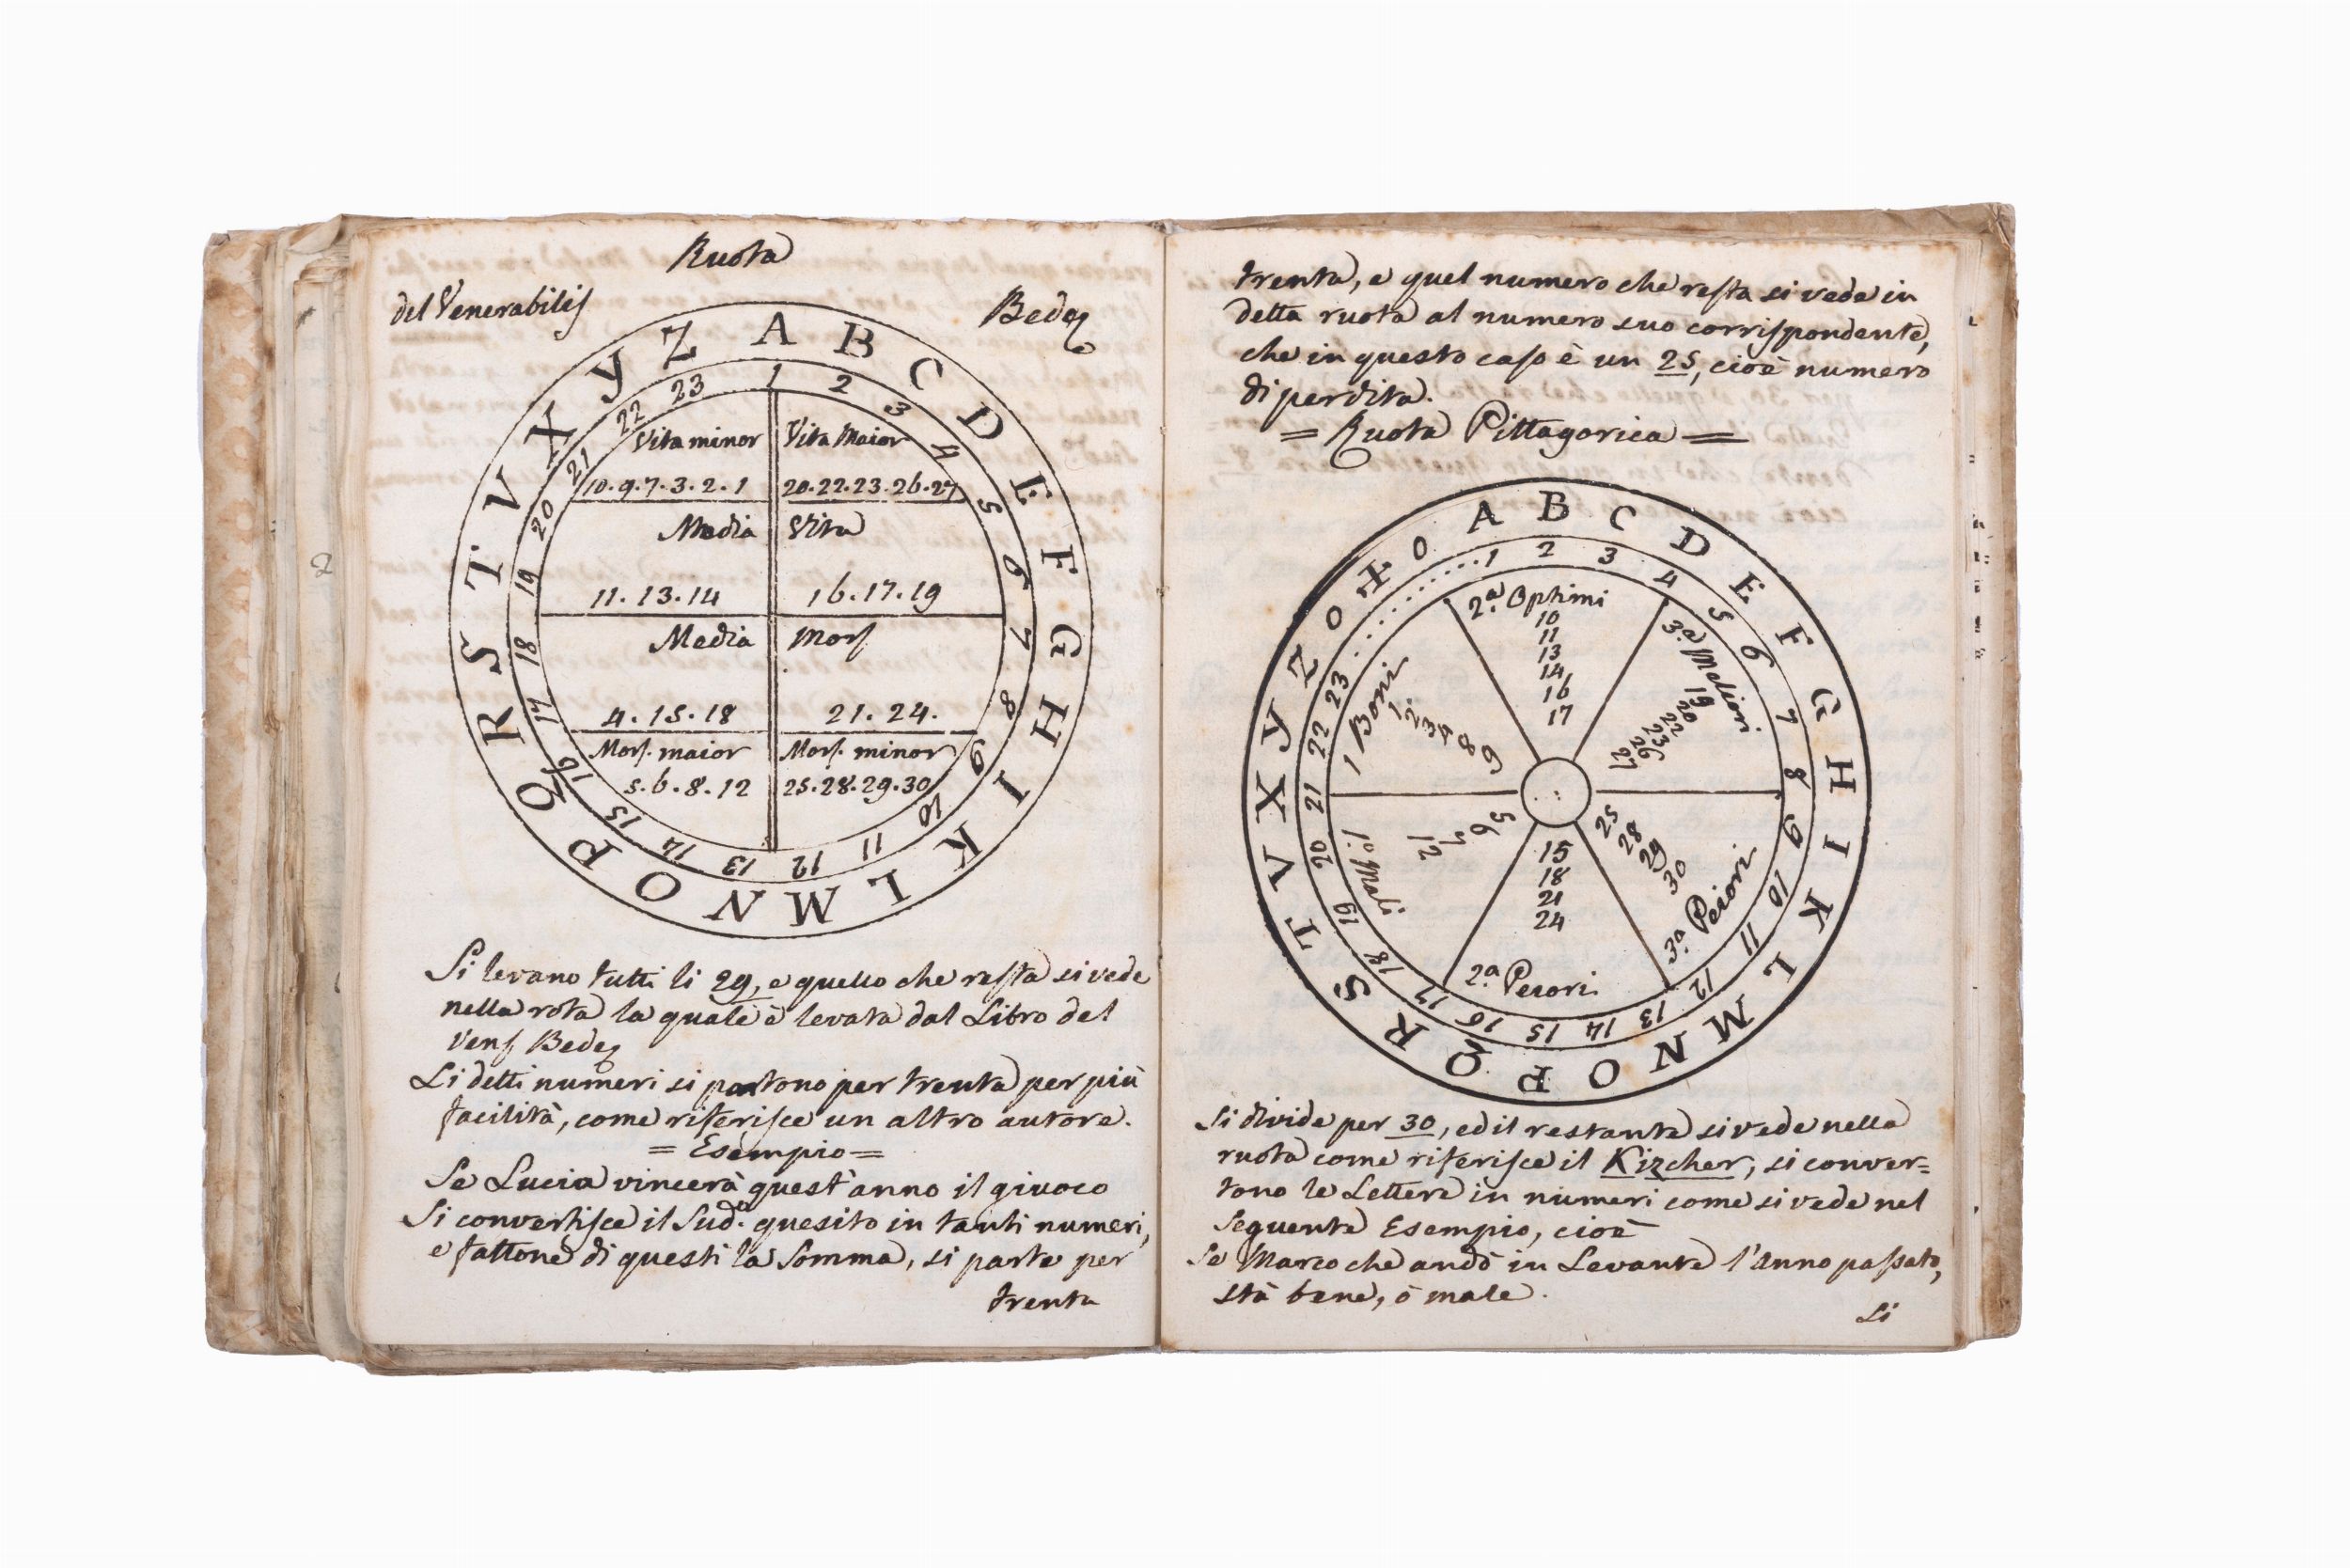 Ruota
del Venerabilis Bedę
A B C D E F G H I K L M N O P Q R S T V X Y Z
1 2 3 4 5 6 7 8 9 10 11 12 13 14 15 16 17 18 19 20 21 22 23
Vita minor Vita Maior
10.9.7.3.2.1 20.22.23.26.27
Media Vita
11.13.14 16.17.19
Media Mors
4.15.18 21.24.
Mors. maior Mors. minor
5.6.8.12 25.28.29.30
Si levano tutti li 29, e quello che resta si vede
nella rota la quale è levata dal Libro del
Vens Bedę
Li detti numeri si partono per trenta per più
facilità, come riferisce un altro autore.
= Esempio =
Se Lucia vincerà quest'anno il giuoco
Si convertisce il Sud.º quesito in tanti numeri,
e fattone di questi la Somma, si parte per
trenta
trenta, e quel numero che resta si vede in
detta ruota al numero suo corrispondente,
che in questo caso è un 25, cioè numero
di perdita.
= Ruota Pittagorica =
A B C D E F G H I K L M N O P Q R S T V X Y Z O O
1 2 3 4 5 6 7 8 9 10 11 12 13 14 15 16 17 18 19 20 21 22 23
1 Boni
1 2 3 4 8 9
2.ª Optimi
10
11
13
14
16
17
3.ª Meliori
19
20
22
23
26
27
1.º Mali
5
6
7
12
2.ª Peiori
15
18
21
24
3.ª Peiori
25
28
29
30
Si divide per 30, ed il restante si vede nella
ruota come riferisce il Kircher, si conver=
tono le Lettere in numeri come si vede nel
Seguente Esempio, cioè
Se Marco che andò in Levante l'Anno passato,
stà bene, ò male.
Li
2